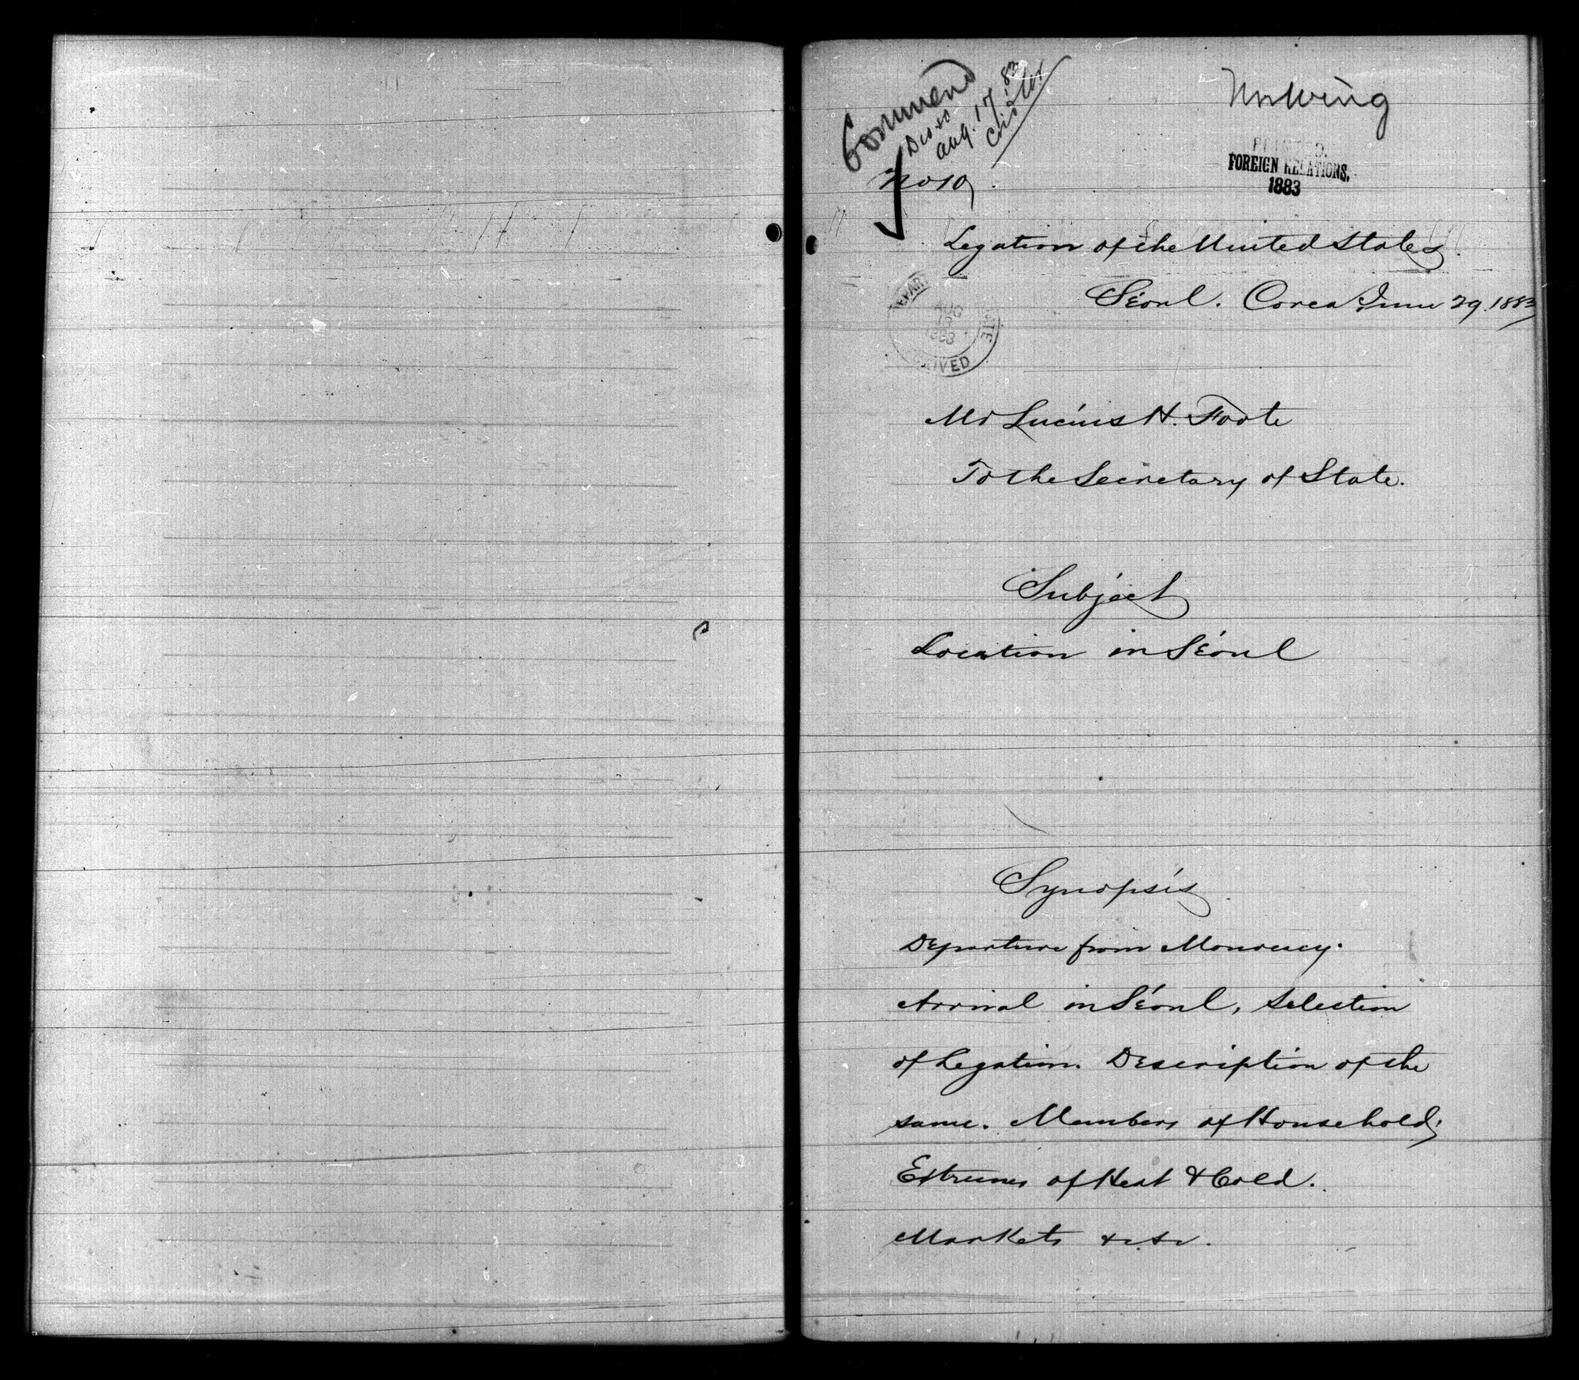 Commend
Aug. 17 83
No 10
Mr Wing
PRINTED.
FOREIGN RELATIONS,
1883
Legation of the United States.
Séoul. Corea June 29. 1883
AUG
1883
Mr Lucius H. Foote
To the Secretary of State.
Subject
Location in Séoul
Synopsis
Departure from Monocacy.
Arrival in Séoul, Selection
of Legation. Description of the
same. Members of Household;
Extremes of Heat & Cold.
Markets &c &c.